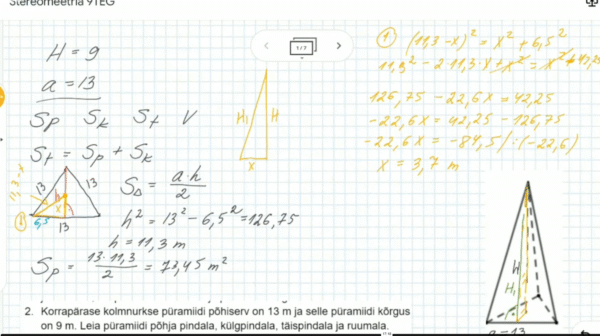 Stereomeetria 9TEG
H = 9
a = 13
Sp Sk St V
St = Sp + Sk
13 13
11,3-x
h
x
6,5
13
S△ = a·h / 2
h² = 13² - 6,5² = 126,75
h = 11,3 m
Sp = 13·11,3 / 2 = 73,45 m²
1/7
H₁ H
x
① (11,3-x)² = x² + 6,5²
11,3² - 2·11,3·x + x² = x² + 42,25
126,75 - 22,6x = 42,25
-22,6x = 42,25 - 126,75
-22,6x = -84,5 /:(-22,6)
x = 3,7 m
H
H₁
a=13
2. Korrapärase kolmnurkse püramiidi põhiserv on 13 m ja selle püramiidi kõrgus
on 9 m. Leia püramiidi põhja pindala, külgpindala, täispindala ja ruumala.